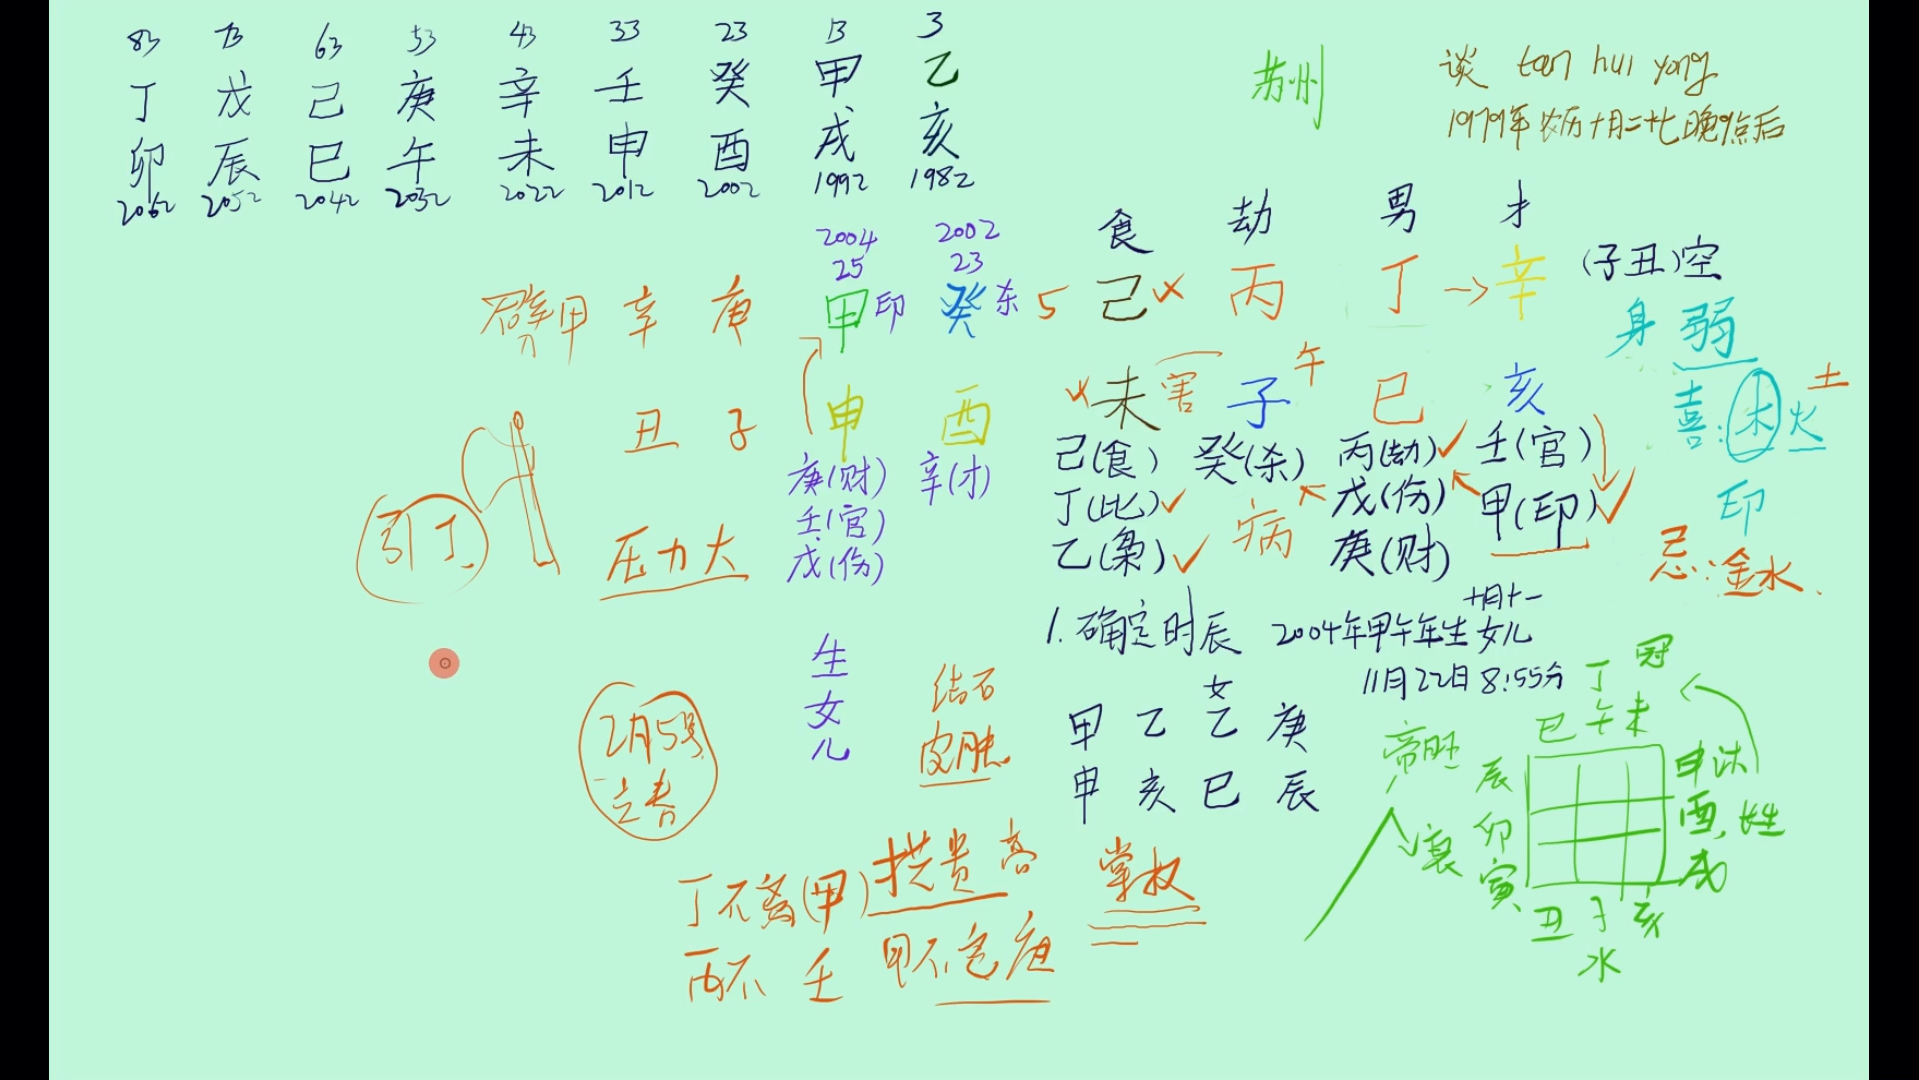 83 73 63 53 43 33 23 13 3
丁 戊 己 庚 辛 壬 癸 甲 乙
卯 辰 巳 午 未 申 酉 戌 亥
2062 2052 2042 2032 2022 2012 2002 1992 1982
苏州
谈 tan hui yong
1979年农历十月二十七晚点后
食 劫 男 才
2004 2002
25 23
劈甲 辛 庚 甲印 癸杀 5 己 丙 丁 辛 (子丑)空
身弱
午
丑 子 申 酉 未 害 子 巳 亥
喜:木火 土
印
忌:金水
庚(财) 辛(才)
壬(官)
戊(伤)
己(食) 癸(杀) 丙(劫) 壬(官)
丁(比) 病 戊(伤) 甲(印)
乙(枭) 庚(财)
引丁
压力大
1.确定时辰 2004年甲午年生女儿
十月十一
11月22日8:55分
生女儿
结石
皮肤
2月5号
立春
女
甲 乙 乙 庚
申 亥 巳 辰
丁 冠
帝旺
巳 午 未
辰 申 沐
衰 卯 酉 长生
寅 戌
丑 子 亥
水
丁不离(甲) 贵 高 掌权
丙不 壬 甲不 庚